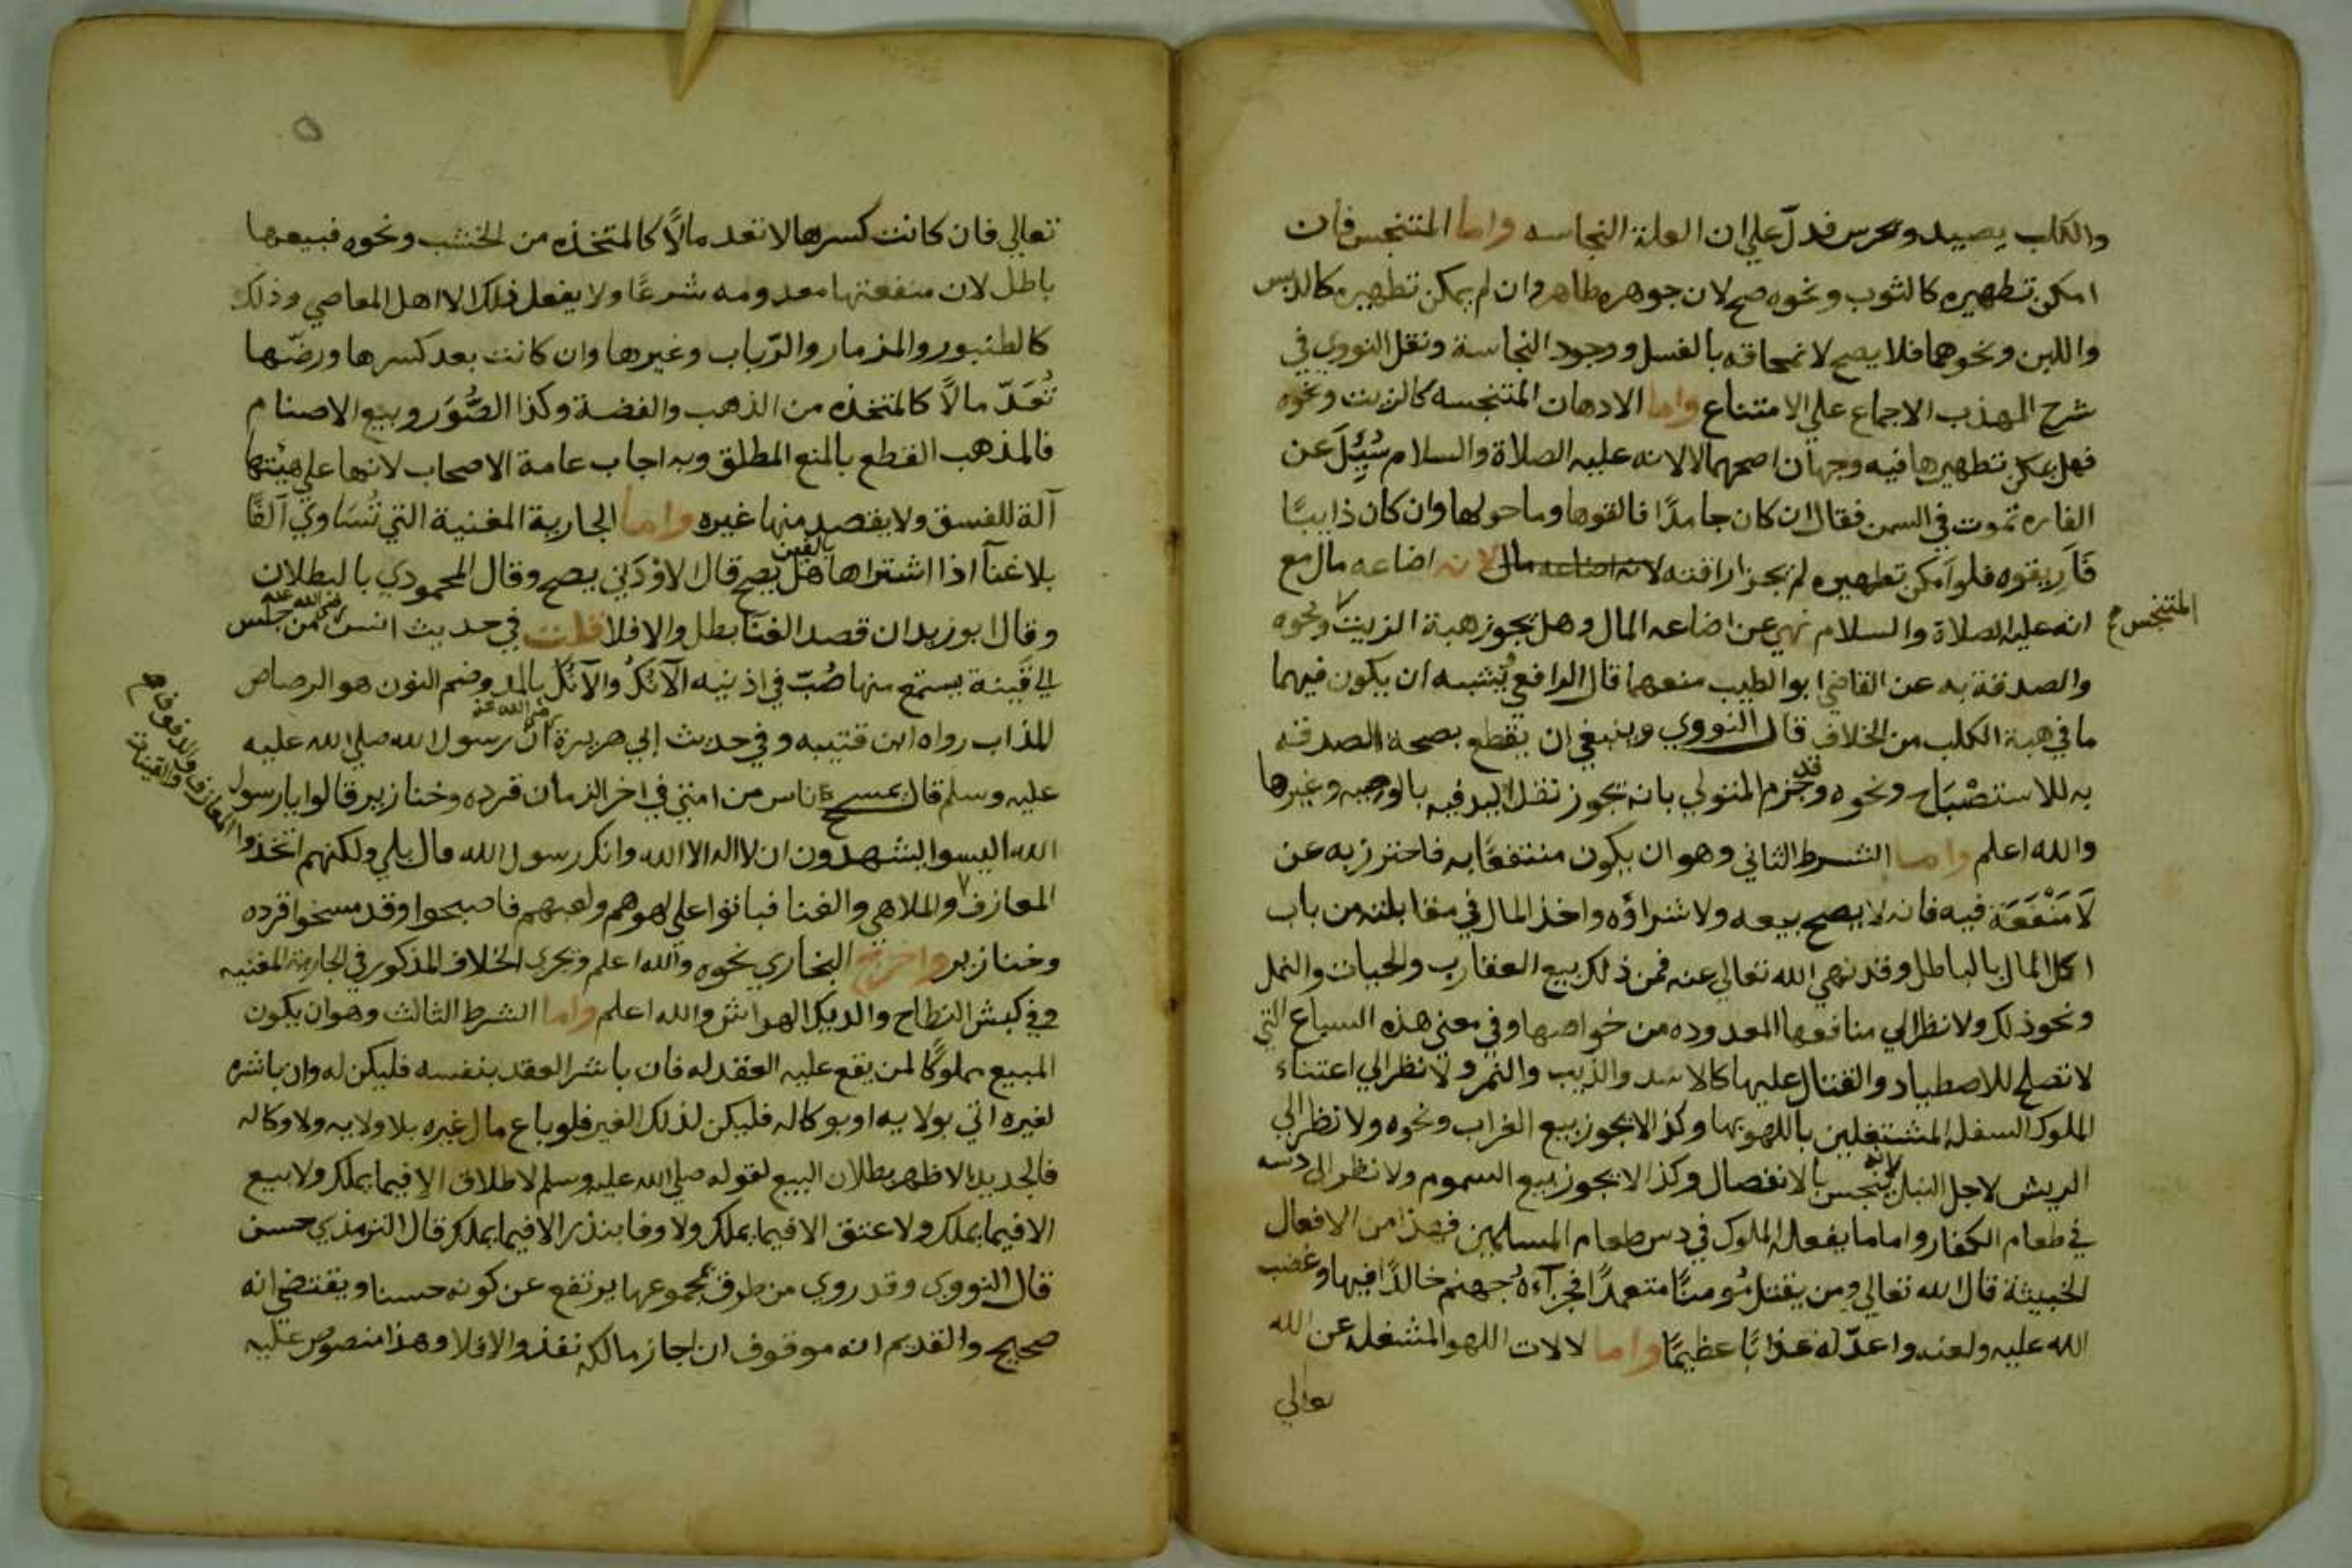 والكلب يصيد ويحرس فدلّ علي ان العلة النجاسه واما المتنجس فان
امكن تطهيره كالثوب ونحوه صح لان جوهره طاهر وان لم يمكن تطهيره كالدبس
واللبن ونحوهما فلا يصح لانمحاقه بالغسل ووجود النجاسة ونقل النووي في
شرح المهذب الاجماع علي الامتناع واما الادهان المتنجسه كالزيت ونحوه
فهل يمكن تطهيرها فيه وجهان اصحهما لا لانه عليه الصلاة والسلام سُئِلَ عن
الفاره تموت في السمن فقال ان كان جامدًا فالقوها وما حولها وان كان ذايبًا
فَأَريقوه فلو امكن تطهيره لم يجز اراقته لانه اضاعه مال لانه اضاعه مال مع
انه عليه الصلاة والسلام نهي عن اضاعه المال وهل يجوز هبة الزيت ونحوه
المتنجس صح
والصدقة به عن القاضي ابو الطيب منعهما قال الرافعي يُشبه ان يكون فيهما
ما في هبة الكلب من الخلاف قال النووي وينبغي ان يقطع بصحة الصدقه
به للاستصْبَاح ونحوه وقد جزم المتولي بانه يجوز نقل اليد فيه بالوصيه وغيرها
والله اعلم واما الشرط الثاني وهو ان يكون منتفعًا به فاحترز به عن
لاَ مَنْفَعَة فيه فانه لا يصح بيعه ولا شراؤه واخذ المال في مقابلته من باب
اكل المال بالباطل وقد نهي الله تعالي عنه فمن ذلك بيع العقارب والحيات والنمل
ونحو ذلك ولا نظر الي منافعها المعدوده من خواصها وفي معني هذه السباع التي
لا تصلح للاصطياد والقتال عليها كالاسد والذيب والنمر ولا نظر الي اعتناء
الملوك السفله المشتغلين باللهو بها وكذا لا يجوز بيع الغراب ونحوه ولا نظر الي
الريش لاجل النبل لانه ينجس بالانفصال وكذا لا يجوز بيع السموم ولا نظر الى دسه
في طعام الكفار واما ما يفعله الملوك في دس طعام المسلمين فهذا من الافعال
الخبيثة قال الله تعالي ومن يقتل مُومنًا متعمدًا فجزآءهُ جهنم خالدًا فيها وغضب
الله عليه ولعنه واعدّ له عذابًا عظيمًا واما لالات اللهو المشغله عن الله
تعالي
٥
تعالي فان كانت كسرها لا تعد مالاً كالمتخذه من الخشب ونحوه فبيعها
باطل لان منفعتها معدومه شرعًا ولا يفعل ذلك الا اهل المعاصي وذلك
كالطنبور والمزمار والرّباب وغيرها وان كانت بعد كسرها ورضّها
تُعَدّ مالاً كالمتخذه من الذهب والفضة وكذا الصُّوَر وبيع الاصنام
فالمذهب القطع بالمنع المطلق وبه اجاب عامة الاصحاب لانها علي هيئتها
آلة للفسق ولا يقصد منها غيره واما الجارية المغنية التي تُسَاوي آلفًا
بلا غنآ اذا اشتراها بالفين هل يصح قال الاوْدَني يصح وقال المحمودي بالبطلان
وقال ابو زيد ان قصد الغنآ بطل والا فلا قلت في حديث انس رضي الله عنه من جلس
الي قَينة يستمع منها صُبّ في اذنيه الآنكُ والآنُك بالمد وضم النون هو الرصاص
المذاب رواه ابن قتيبه وفي حديث ابي هريرة رضي الله عنه انّ رسول الله صلي الله عليه
عليه وسلم قال يمسخ ناس من امتي في اخر الزمان قرده وخنازير قالوا يا رسول
الله اليسوا يشهدون ان لا اله الا الله وانك رسول الله قال بلي ولكنهم اتخذوا
المعازف والملاهي والغنا فباتوا علي لهوهم ولعبهم فاصبحوا وقد مسخوا قرده
المعازف والدفوف
والقينات
وخنازير واخرج البخاري نحوه والله اعلم ويجري الخلاف المذكور في الجاريه المغنيه
وفي كبش النطاح والديك الهراش والله اعلم واما الشرط الثالث وهو ان يكون
المبيع مملوكًا لمن يقع عليه العقد له فان باشر العقد بنفسه فليكن له وان باشره
لغيره اتي بولايه او بوكاله فليكن لذلك الغير فلو باع مال غيره بلا ولايه ولا وكاله
فالجديد الاظهر بطلان البيع لقوله صلي الله عليه وسلم لا طلاق الا فيما يملك ولا بيع
الا فيما يملك ولا عتق الا فيما يملك ولا وفا بنذر الا فيما يملك قال الترمذي حسن
قال النووي وقد روي من طرق بمجموعها يرتفع عن كونه حسنا ويقتضي انه
صحيح والقديم انه موقوف ان اجاز مالكه نفذ والا فلا وهذا منصوص عليه